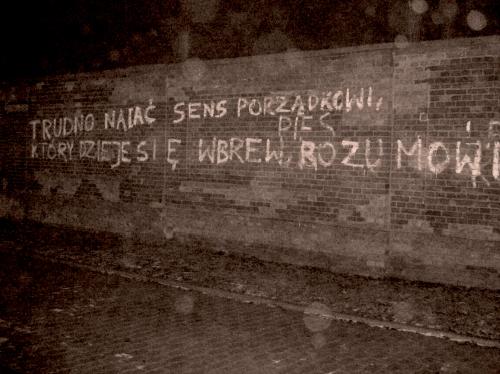 TRUDNO NAIAĆ SENS PORZĄDKOWI,
PIES
KTÓRY DZIEJE SI Ę WBREW, ROZU MOWI